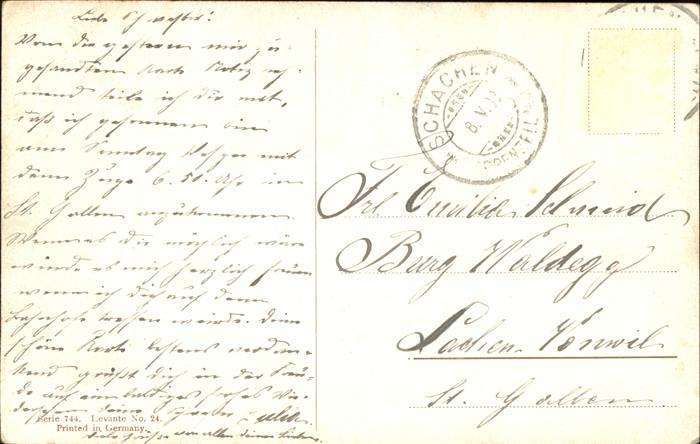 Liebe Schwester!
Von der gestern mir zu-
gesandten Karte Notiz neh-
mend teile ich dir mit,
daß ich gesonnen bin
am Sonntag mit
dem Zuge 6.50 Uhr in
St. Gallen anzukommen.
Wenn es dir möglich wäre
würde es mich herzlich freuen
wenn ich dich auf dem
Bahnhofe treffen würde. Deine
schöne Karte bestens verdan-
kend grüßt dich in der Freu-
de auf ein baldiges frohes Wie-
dersehen deine
Serie 744. Levante No. 24.
Printed in Germany.
SCHACHEN
8.V.
Frl. Emilia Schmid
Burg Waldegg
Lachen-Vonwil
St. Gallen